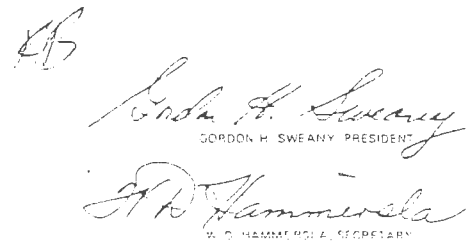 KB
Gordon H. Sweany
GORDON H. SWEANY PRESIDENT
W D Hammersla
W. D. HAMMERSLA, SECRETARY